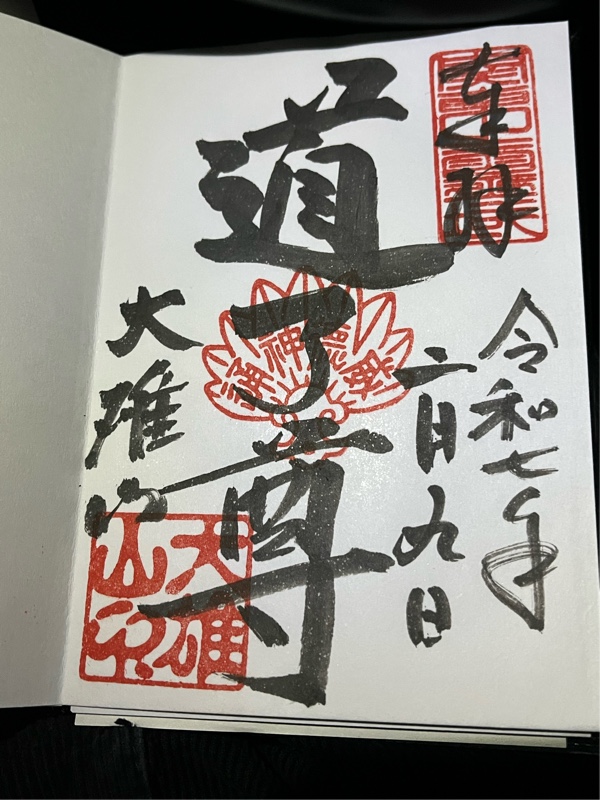 奉拝
令和七年
二月九日
道了尊
大雄山
大雄
山印